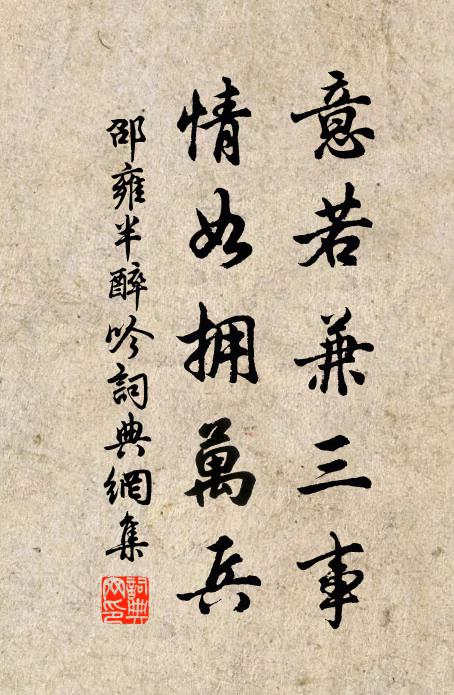 意若兼三事
情如拥萬兵
邵雍半醉吟詞典網集
詞典
网印